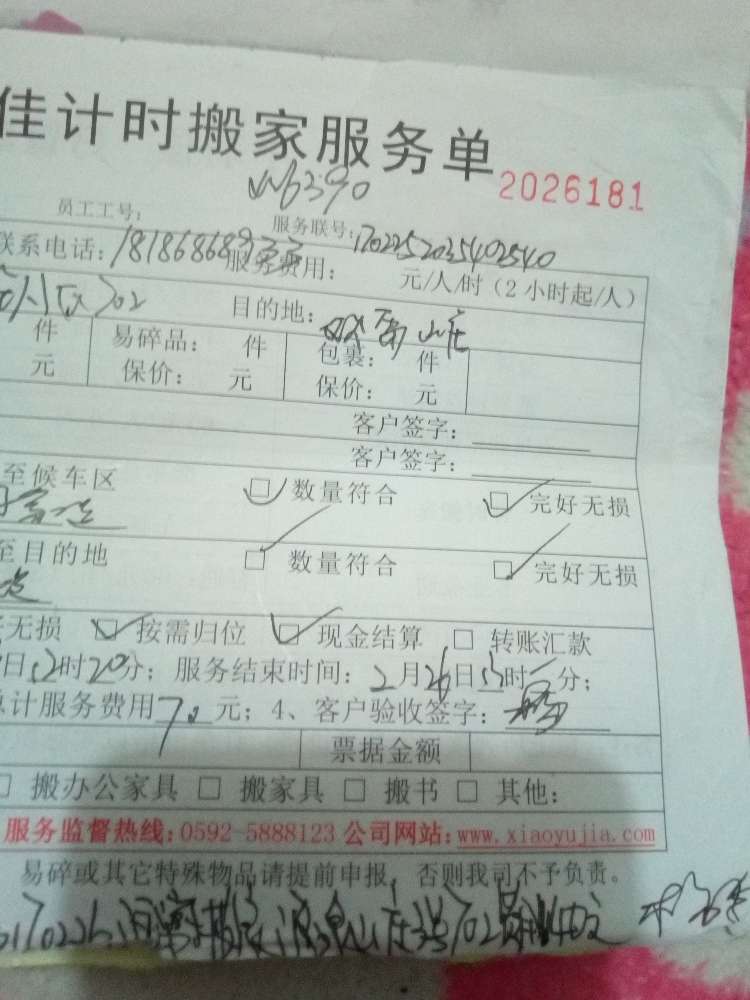 佳计时搬家服务单
2026181
员工工号: 服务联号:
联系电话: 服务费用: 元/人/时（2小时起/人）
702 目的地: 山庄
件 易碎品: 件 包裹: 件
元 保价: 元 保价: 元
客户签字:
客户签字:
至候车区 数量符合 完好无损
至目的地 数量符合 完好无损
无损 按需归位 现金结算 转账汇款
日12时20分；服务结束时间: 2月26日 时 分；
总计服务费用70元；4、客户验收签字:
票据金额
搬办公家具 搬家具 搬书 其他:
服务监督热线:0592-5888123 公司网站:www.xiaoyujia.com
易碎或其它特殊物品请提前申报，否则我司不予负责。